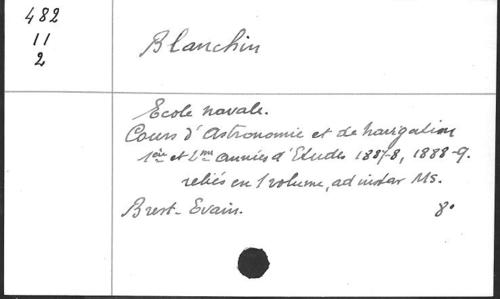 482
11
2
Blanchin
Ecole navale.
Cours d'Astronomie et de Navigation
1ère et 2me années d'Etudes 1887-8, 1888-9.
reliés en 1 volume, ad instar Ms.
Brest - Evain. 8°